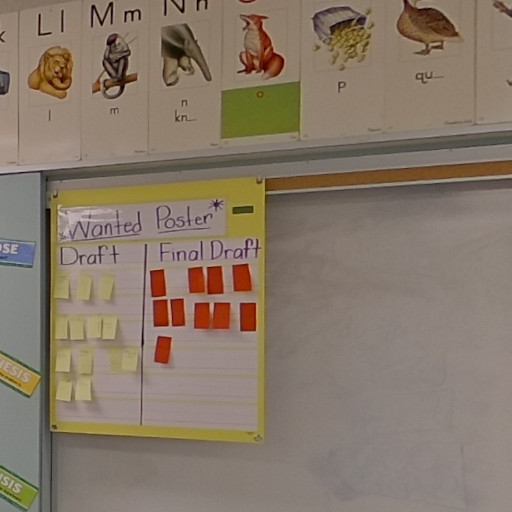 Ll Mm Nn
l m n o p qu_
kn_
*Wanted Poster*
Draft Final Draft
OSE
NESIS
SIS